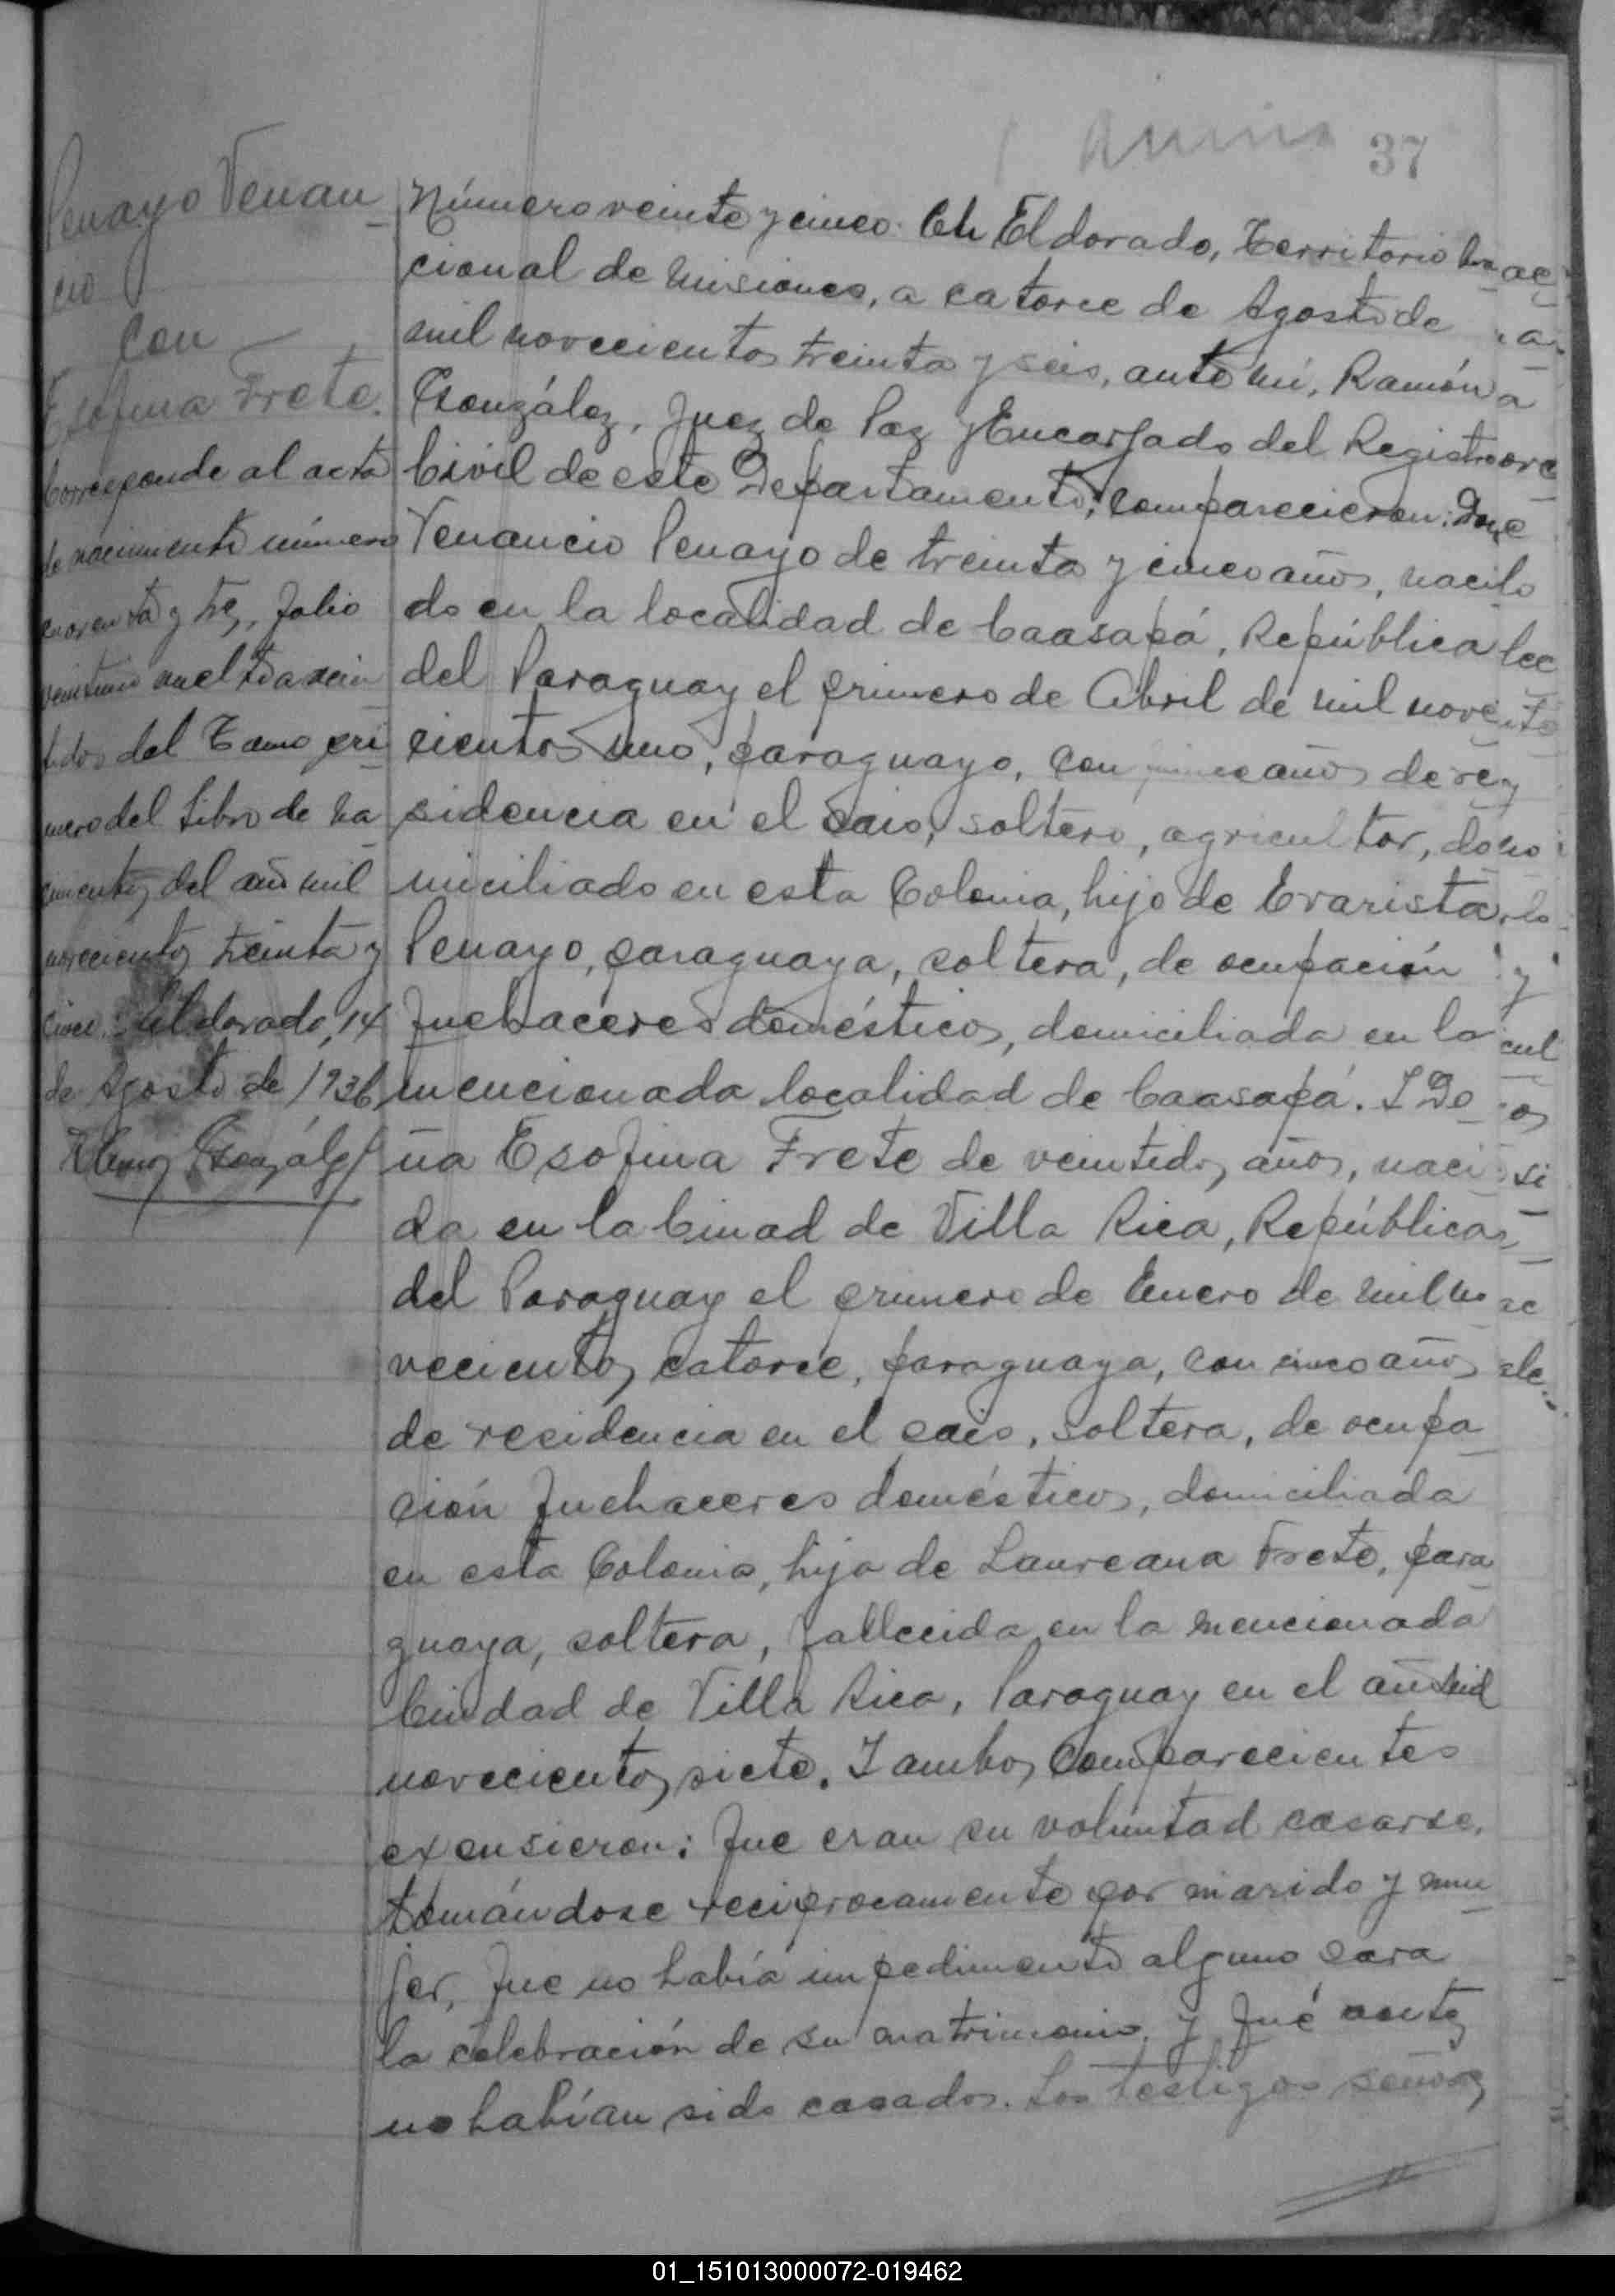 37
Penayo Venan
cio
con
Esofina Frete.
Corresponde al acta
de nacimiento número
cuarenta y tres, folio
veintidos del Tomo pri
mero del Libro de Na
cimientos del año mil
novecientos treinta y
cinco. Eldorado, 14
de Agosto de 1936
González
Número veinte y cinco. En Eldorado, Territorio Na
cional de Misiones, a catorce de Agosto de
mil novecientos treinta y seis, ante mi, Ramón
González, Juez de Paz y Encargado del Registro
Civil de este Departamento, comparecieron: Don
Venancio Penayo de treinta y cinco años, naci
do en la localidad de Caasapá, República
del Paraguay el primero de Abril de mil nove
cientos uno, paraguayo, con años de re
sidencia en el pais, soltero, agricultor, do
miciliado en esta Colonia, hijo de Evarista
Penayo, paraguaya, soltera, de ocupación
quehaceres domésticos, domiciliada en la
mencionada localidad de Caasapá. Y Do
ña Esofina Frete de veintidos años, naci
da en la Ciuad de Villa Rica, República
del Paraguay el primero de Enero de mil no
vecientos catorce, paraguaya, con cinco años
de residencia en el pais, soltera, de ocupa
ción quehaceres domésticos, domiciliada
en esta Colonia, hija de Laureana Frete, para
guaya, soltera, fallecida en la mencionada
Ciudad de Villa Rica, Paraguay en el año mil
novecientos siete. Y ambos comparecientes
expusieron: Que eran su voluntad casarse,
tomándose reciprocamente por marido y mu
jer, que no había impedimento alguno para
la celebración de su matrimonio, y qué antes
no habían sido casados. Los testigos señores
01_151013000072-019462